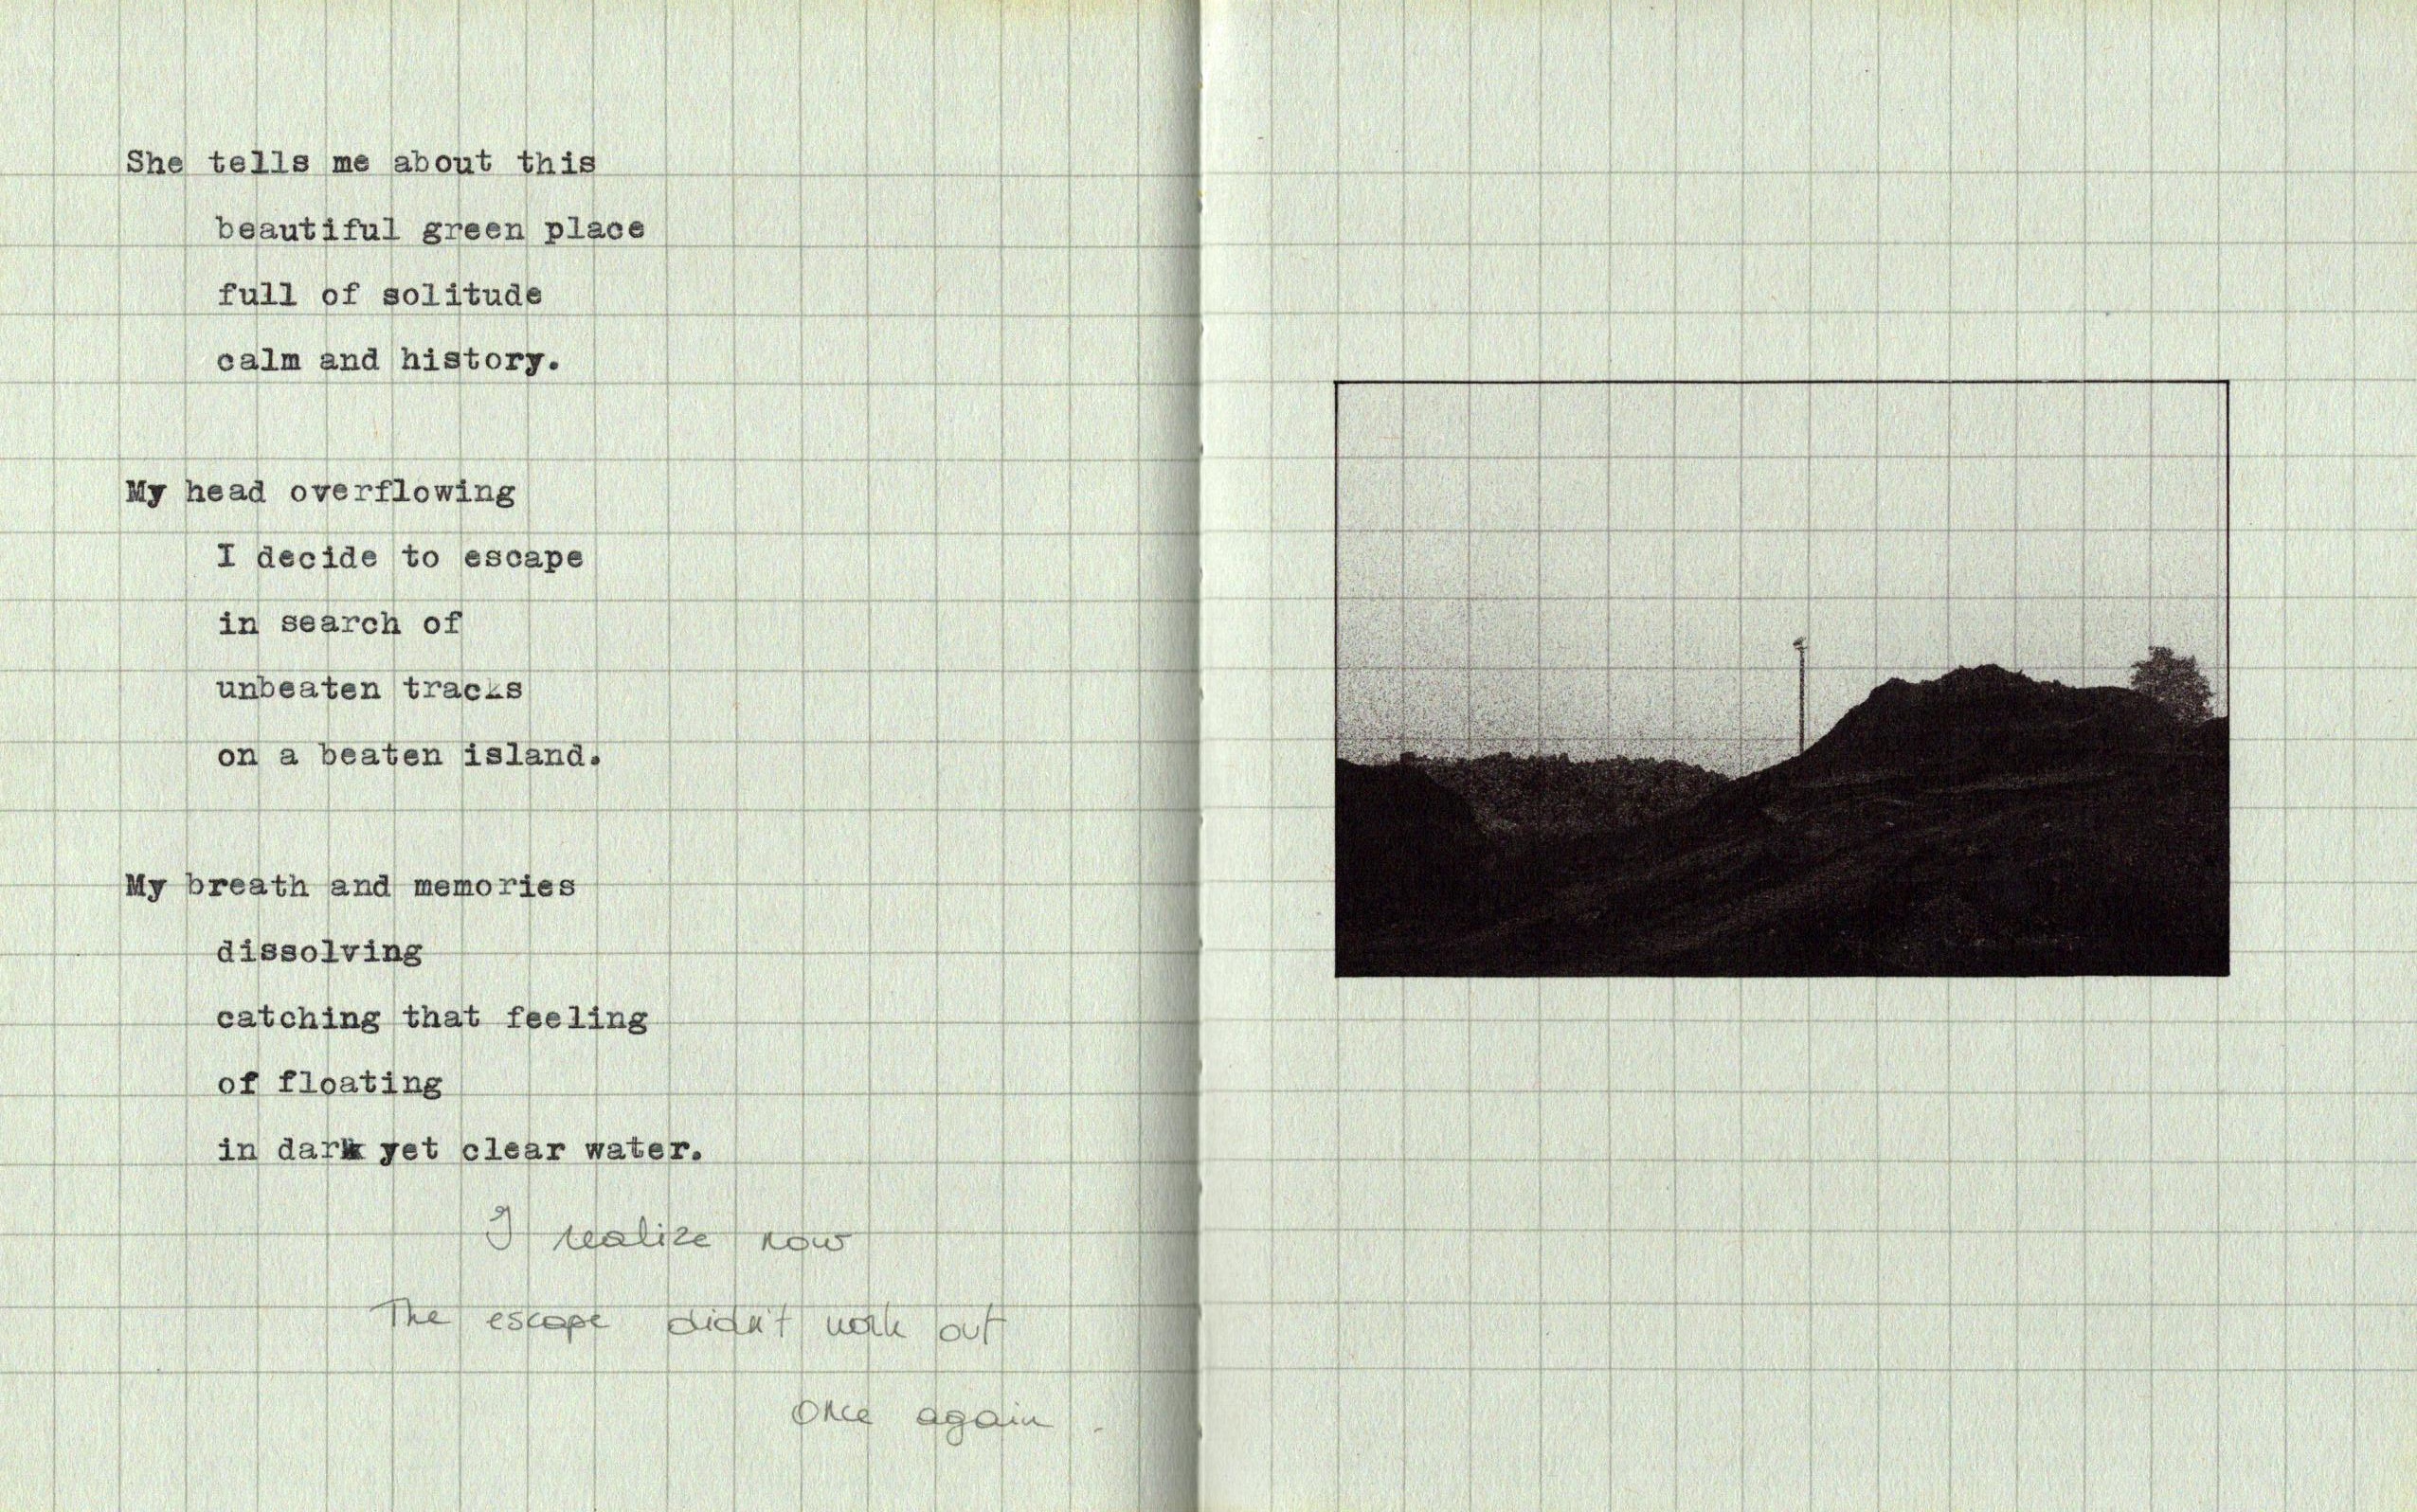 She tells me about this
beautiful green place
full of solitude
calm and history.
My head overflowing
I decide to escape
in search of
unbeaten tracks
on a beaten island.
My breath and memories
dissolving
catching that feeling
of floating
in dark yet clear water.
I realize now
The escape didn't work out
once again.